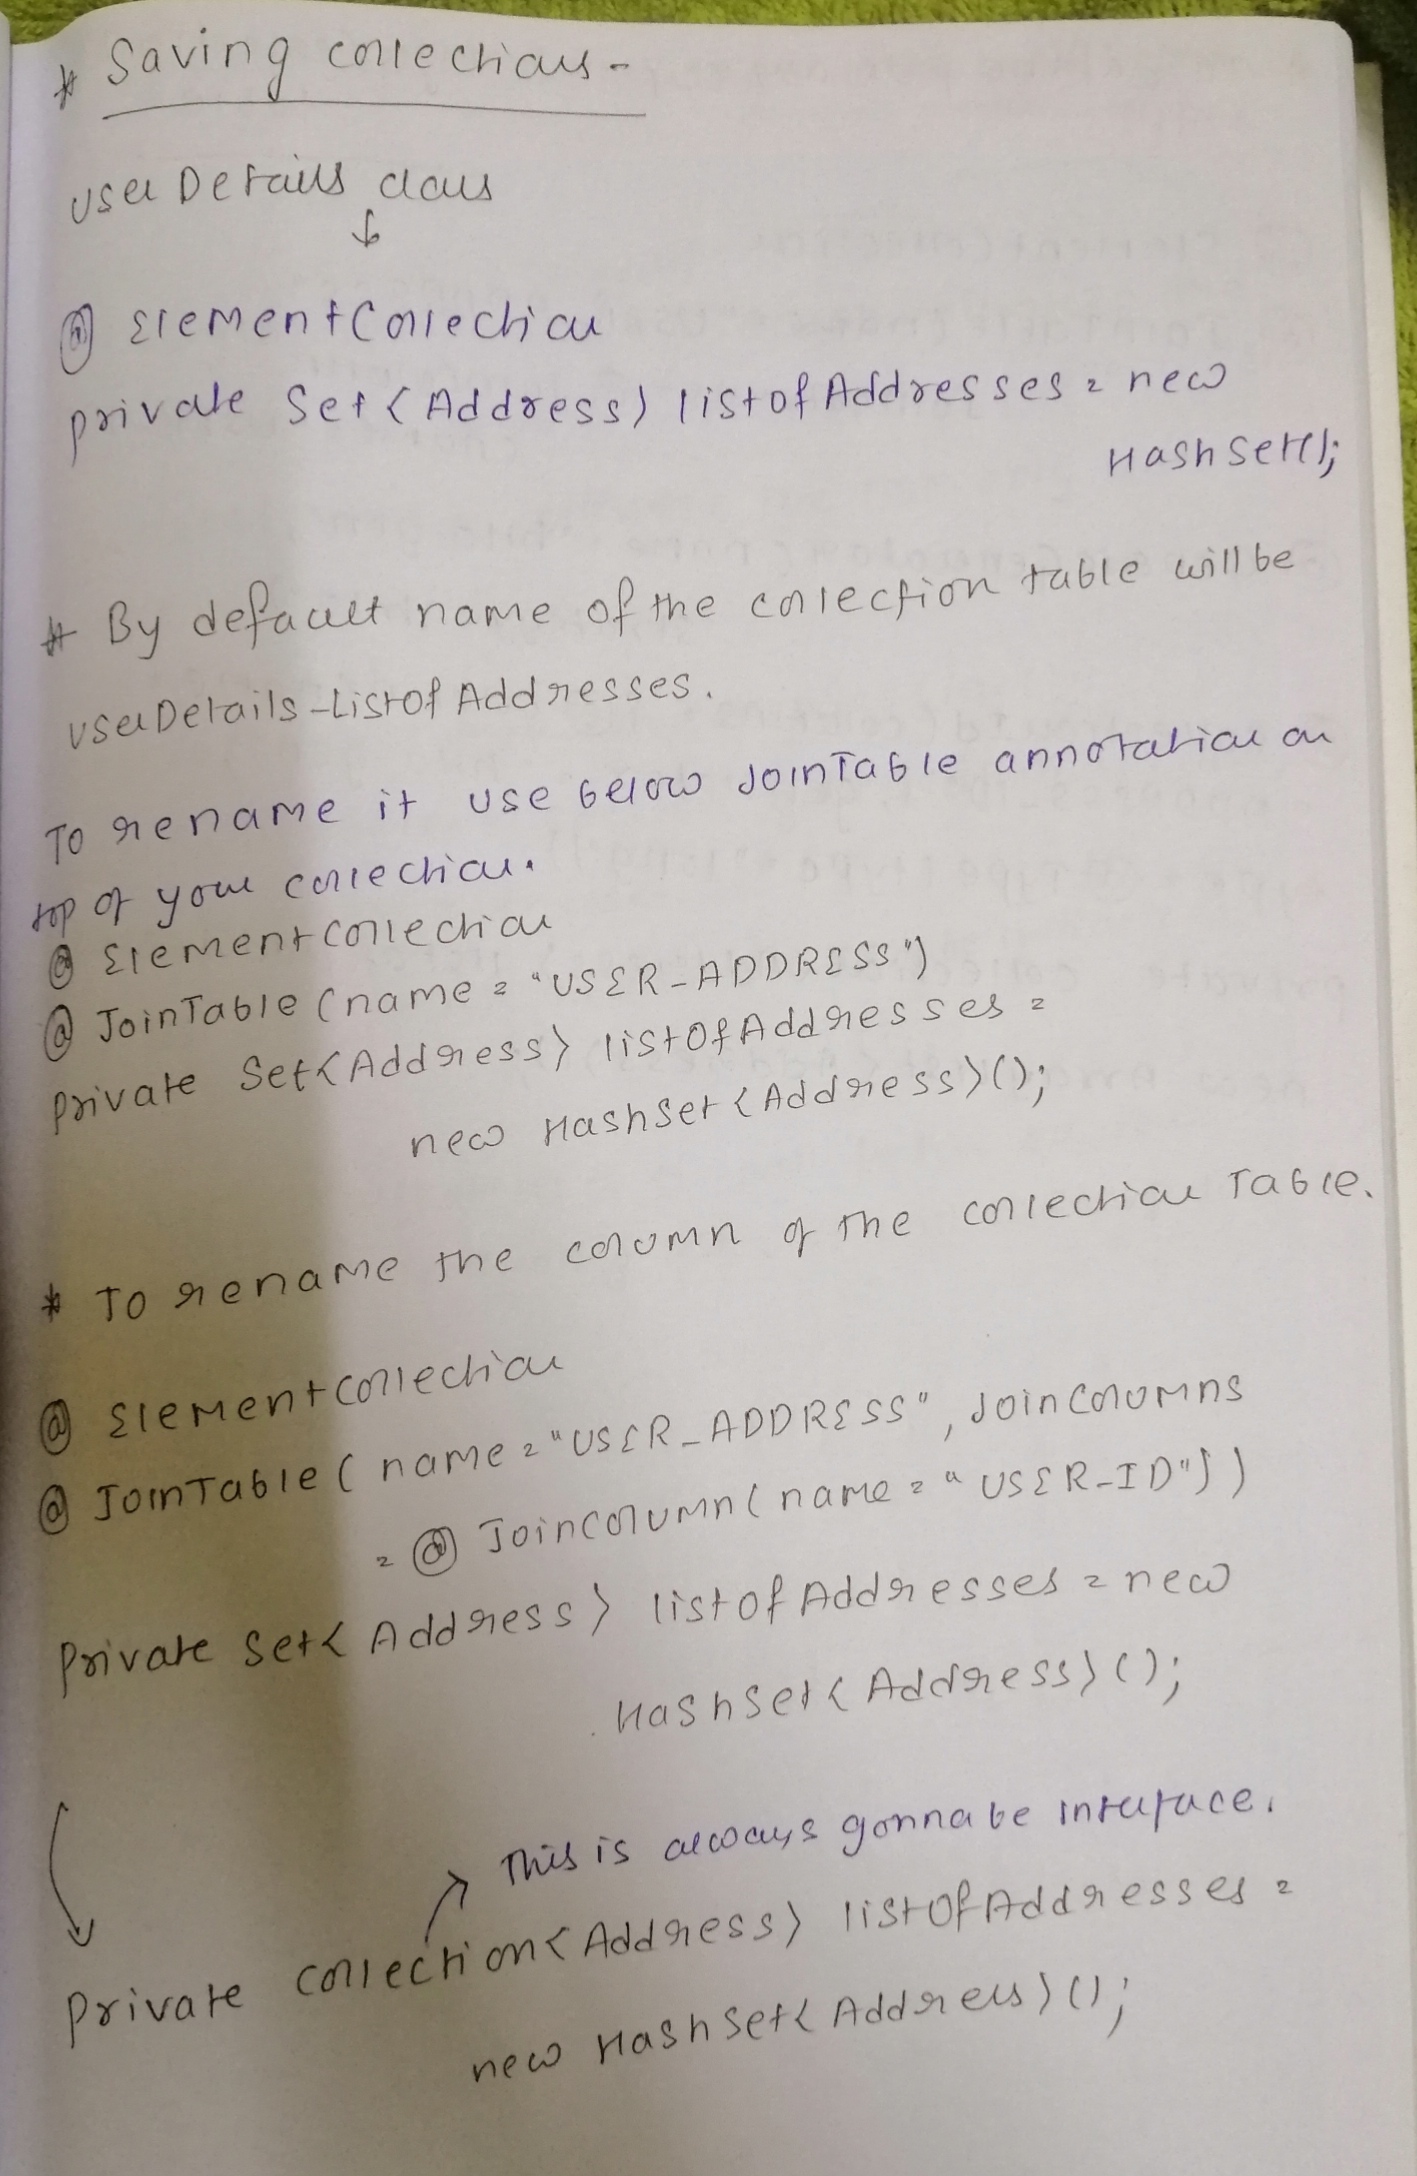 * Saving collections -
UserDetails class
↓
@ ElementCollection
private Set<Address> listofAddresses = new
HashSet();
* By default name of the collection table will be
UserDetails_ListOfAddresses.
To rename it use below JoinTable annotation on
top of your collection.
@ ElementCollection
@ JoinTable (name = "USER_ADDRESS")
private Set<Address> listOfAddresses =
new HashSet<Address>();
* To rename the column of the collection Table.
@ ElementCollection
@ JoinTable ( name = "USER_ADDRESS", JoinColumns
= @ JoinColumn( name = "USER_ID"))
Private Set< Address> listofAddresses = new
HashSet< Address>();
→ This is always gonna be interface.
Private Collection<Address> listOfAddresses =
new HashSet<Address>();